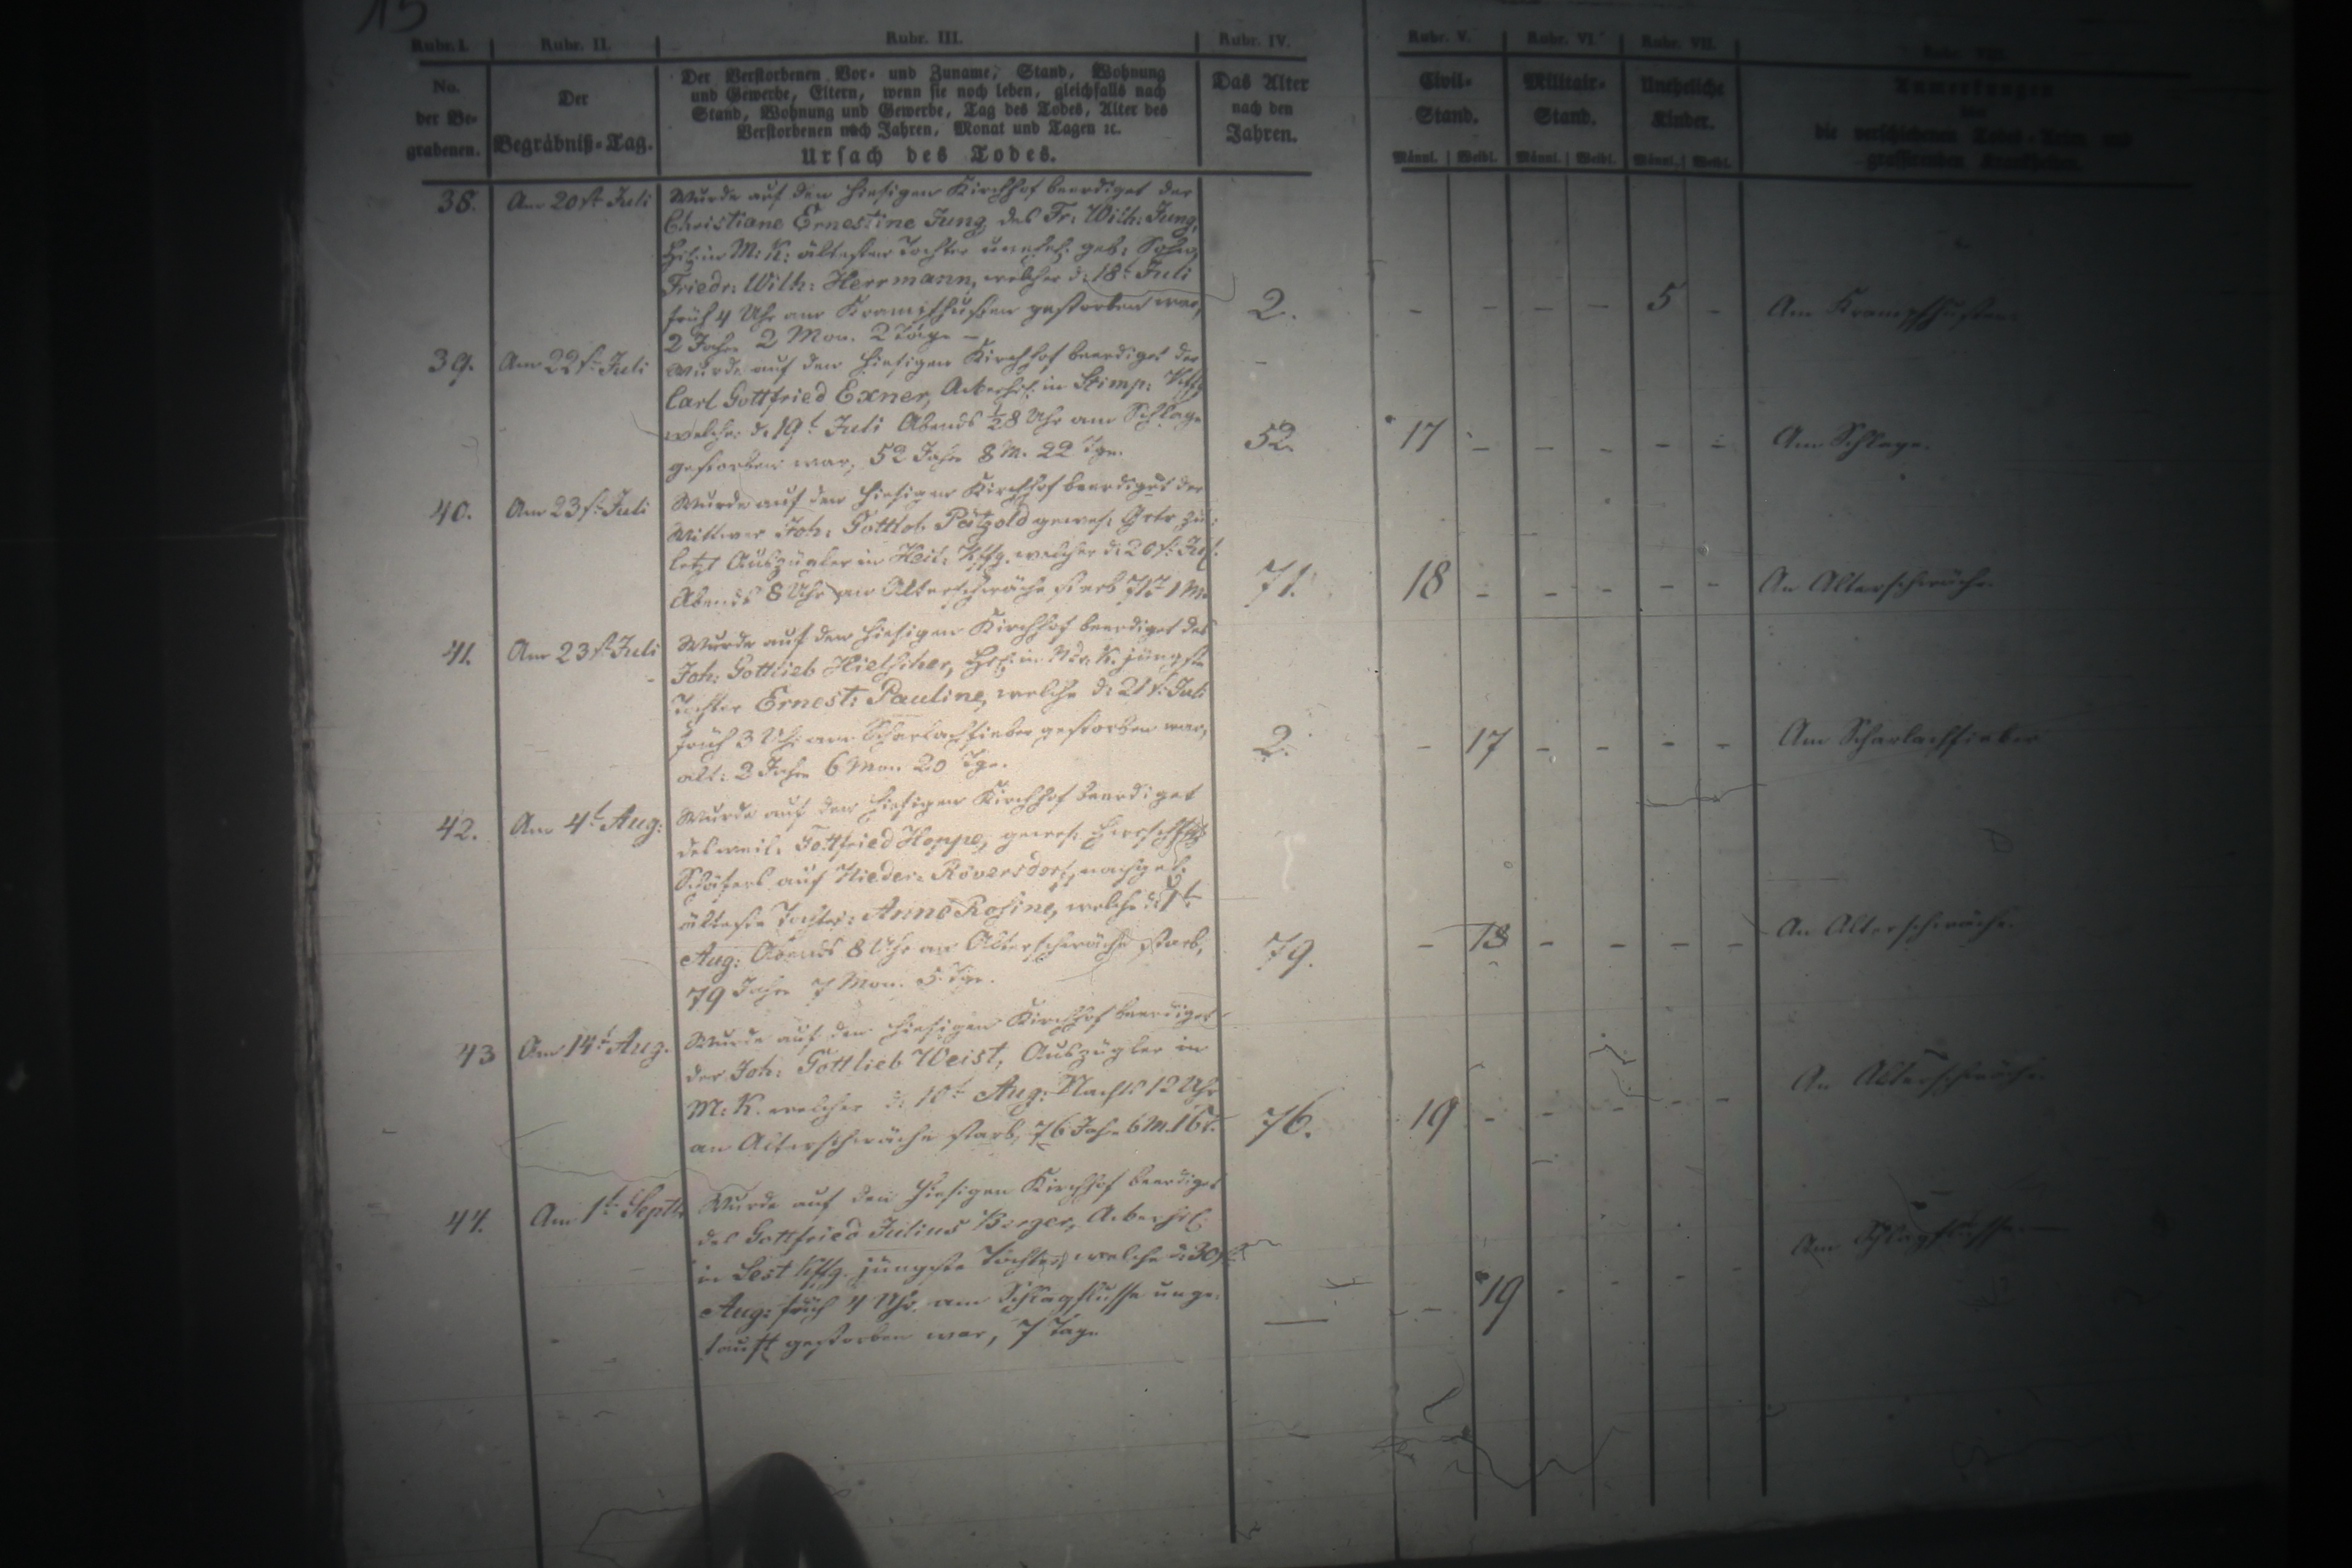 15
Rubr. I. Rubr. II. Rubr. III. Rubr. IV. Rubr. V. Rubr. VI. Rubr. VII. Rubr. VIII.
No.
der Be-
grabenen.
Der
Begräbniß-Tag.
Der Verstorbenen Vor- und Zuname, Stand, Wohnung
und Gewerbe, Eltern, wenn sie noch leben, gleichfalls nach
Stand, Wohnung und Gewerbe, Tag des Todes, Alter des
Verstorbenen nach Jahren, Monat und Tagen ꝛc.
Ursach des Todes.
Das Alter
nach den
Jahren.
Civil-
Stand.
Männl. Weibl.
Militair-
Stand.
Männl. Weibl.
Uneheliche
Kinder.
Männl. Weibl.
Anmerkungen
die verschiedenen Todes-Arten und
grassirenden Krankheiten.
38. Am 20st Juli
Wurde auf den hiesigen Kirchhof beerdiget der
Christiane Ernestine Jung, des Fr: Wilh: Jung,
in M: K: ältesten Tochter unehel. geb: Sohn,
Friedr: Wilh: Herrmann, welcher d: 18t Juli
früh 4 Uhr am Krampfhusten gestorben war,
2 Jahre 2 Mon. 2 Tage –
2. – – – – 5 – Am Krampfhusten.
39. Am 22st Juli
Wurde auf den hiesigen Kirchhof beerdiget der
Carl Gottfried Exner, Ackerhsl. in Stimp:
welcher d. 19t Juli Abends ½8 Uhr am Schlage
gestorben war, 52 Jahre 8 M. 22 Tge.
52. 17 – – – – – Am Schlage.
40. Am 23st Juli
Wurde auf den hiesigen Kirchhof beerdiget der
Wittwer Joh: Gottlob Pätzold gewes: Grtr zu-
letzt Auszügler in Heil: Kffg. welcher d: 20st Jul.
Abends 8 Uhr an Altersschwäche starb 71 J. 1 M.
71. 18 – – – – – An Altersschwäche.
41. Am 23st Juli
Wurde auf den hiesigen Kirchhof beerdiget des
Joh: Gottlieb Hielscher, Hsl. in Ndr. K. jüngste
Tochter Ernest: Pauline, welche d: 21st Juli
früh 3 Uhr am Scharlachfieber gestorben war,
alt: 2 Jahre 6 Mon. 20 Tge.
2. – 17 – – – – Am Scharlachfieber
42. Am 4t Aug:
Wurde auf den hiesigen Kirchhof beerdiget
des weil. Gottfried Hoppe, gewes: herrschftl.
Schäfers auf Nieder: Röversdorf, nachgel.
älteste Tochter: Anne Rosine, welche d: 1t
Aug: Abends 8 Uhr an Altersschwäche starb,
79 Jahre 7 Mon. 5 Tge.
79. – 18 – – – – An Altersschwäche.
43 Am 14t Aug.
Wurde auf den hiesigen Kirchhof beerdiget
der Joh: Gottlieb Weist, Auszügler in
M: K. welcher d: 10t Aug: Nachts 12 Uhr
an Altersschwäche starb, 76 Jahr 6 M. 16 T.
76. 19 – – – – – An Altersschwäche.
44. Am 1t Septb.
Wurde auf den hiesigen Kirchhof beerdiget
des Gottfried Julius Berger, Ackerhsl.
in Seit Kffg. jüngste Tochter, welche d: 30st
Aug: früh 4 Uhr am Schlagflusse unge-
tauft gestorben war, 7 Tage
— – 19 – – – Am Schlagflusse.